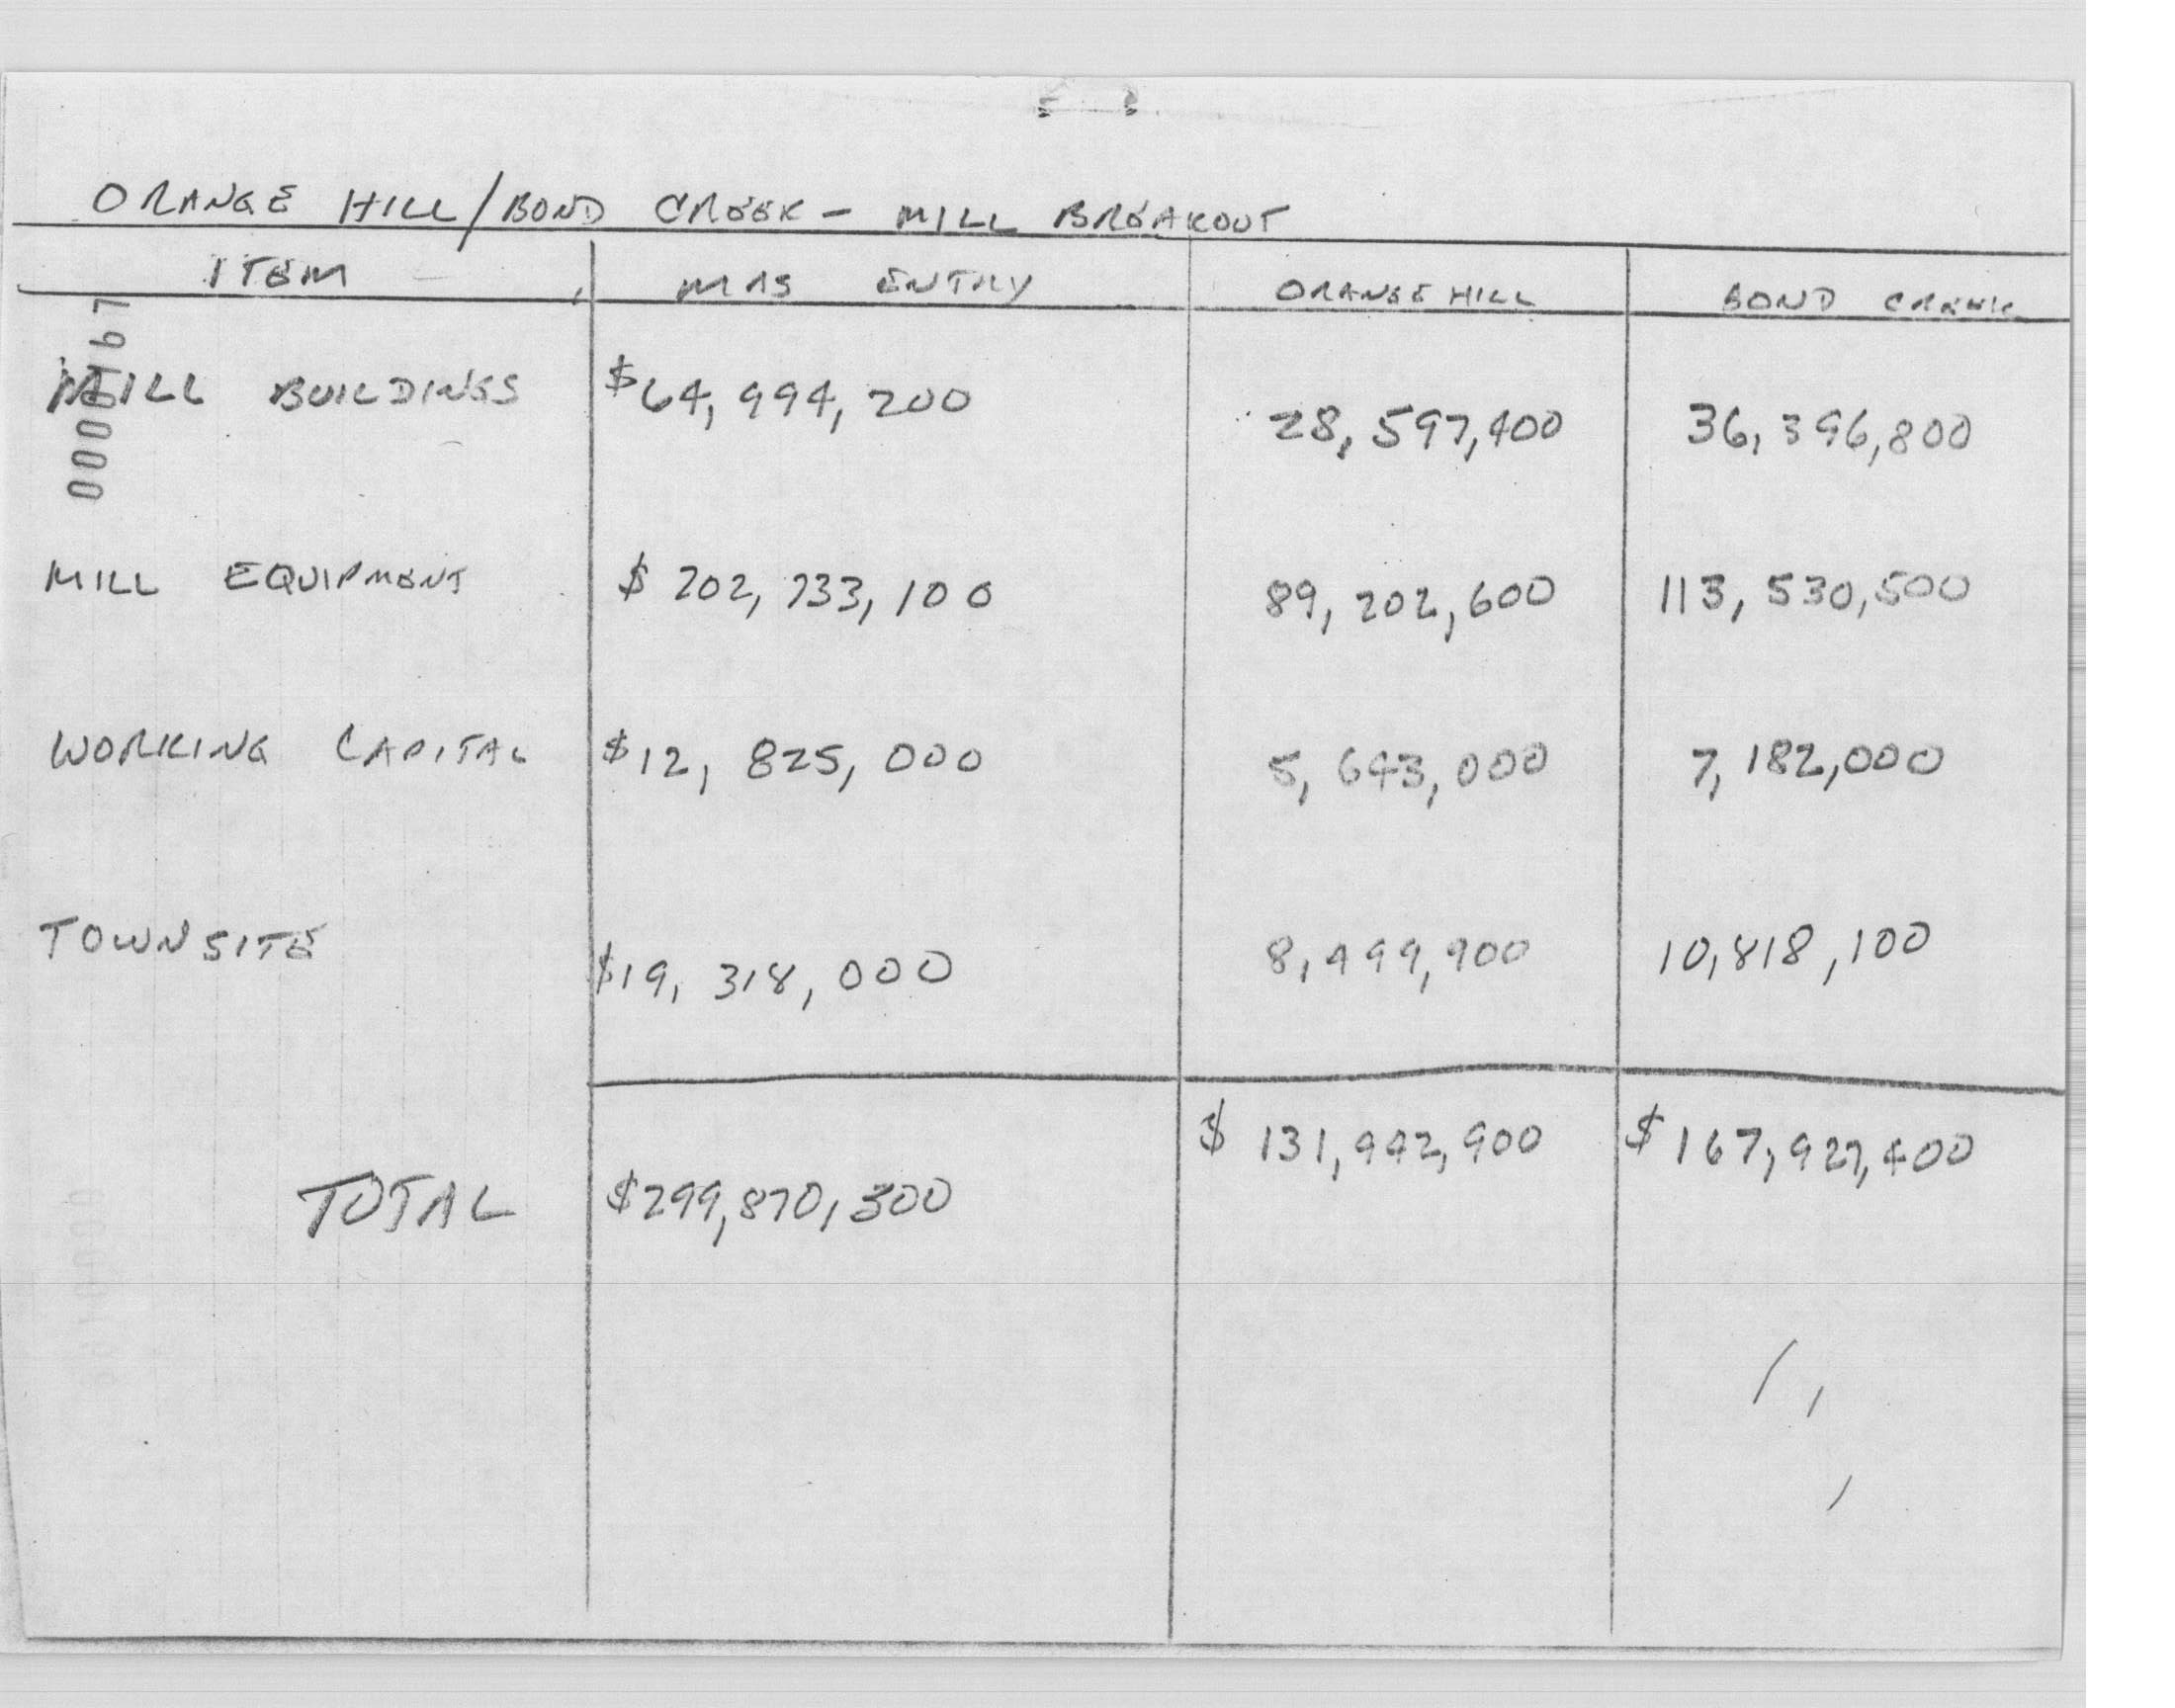 ORANGE HILL/BOND CREEK - MILL BREAKOUT
ITEM MAS ENTRY ORANGE HILL BOND CREEK
MILL BUILDINGS $64,994,200 28,597,400 36,396,800
MILL EQUIPMENT $202,733,100 89,202,600 113,530,500
WORKING CAPITAL $12,825,000 5,643,000 7,182,000
TOWNSITE $19,318,000 8,499,900 10,818,100
TOTAL $299,870,300 $131,942,900 $167,927,400